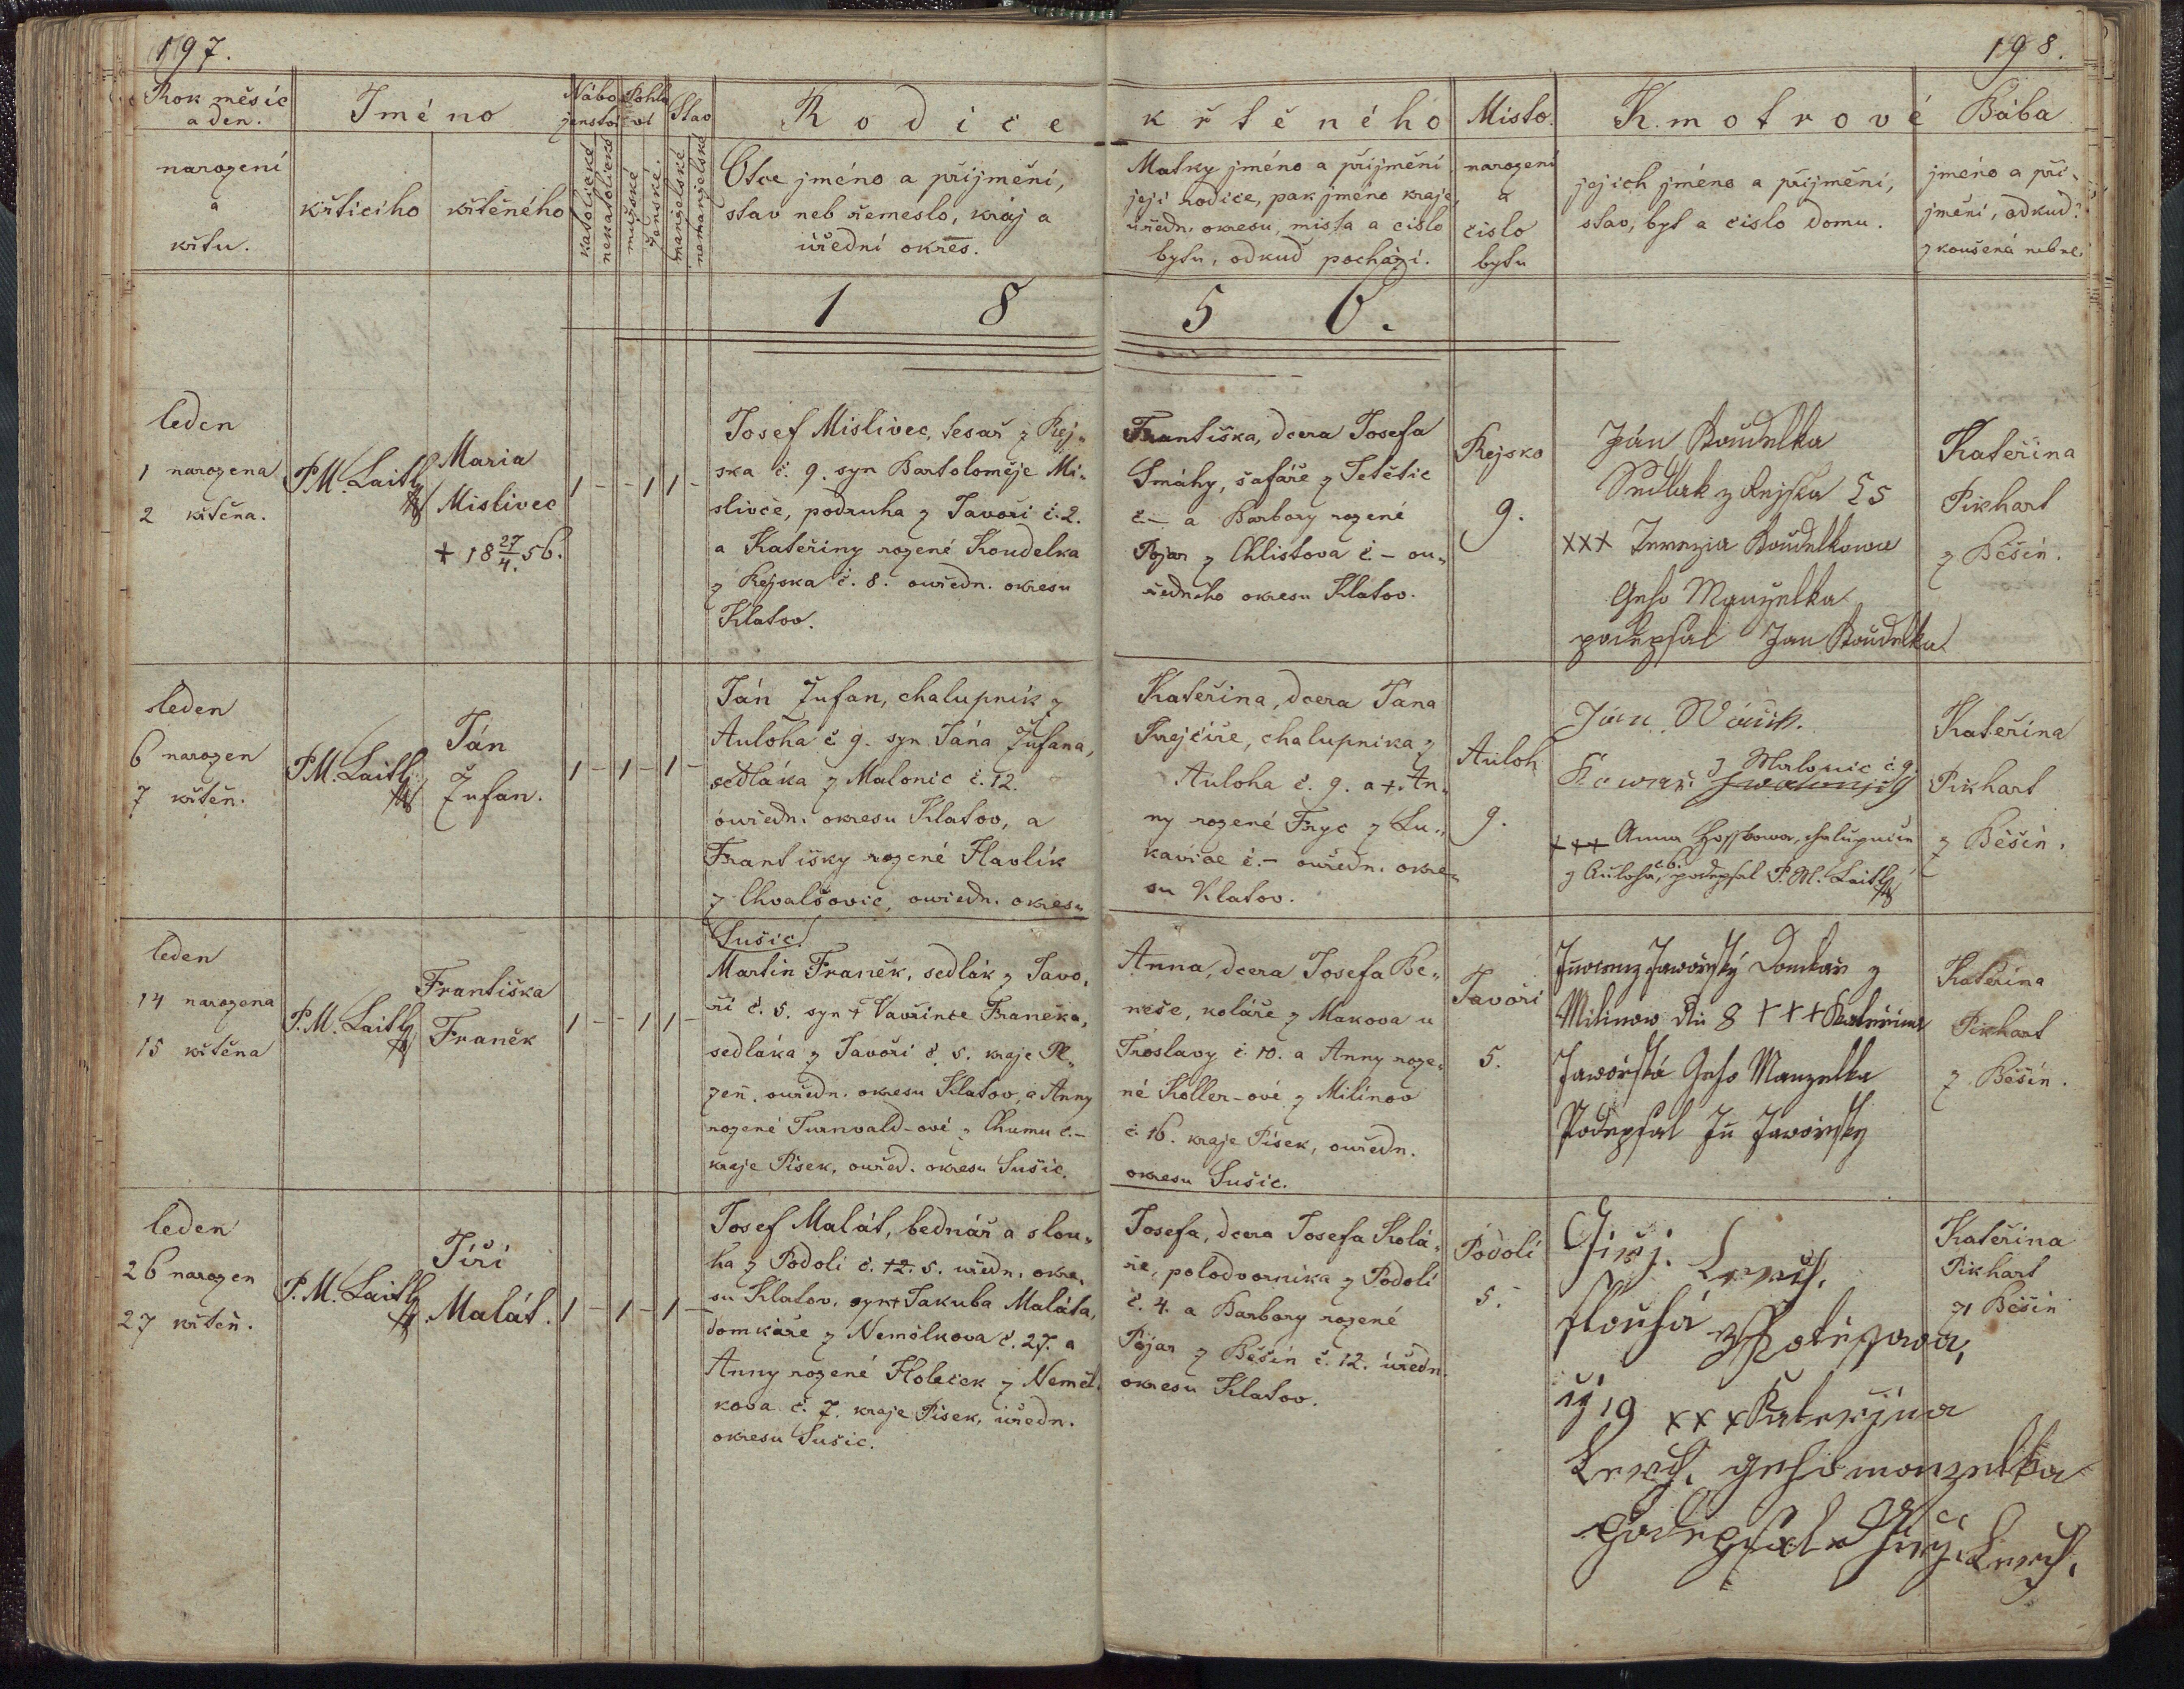 197.
198.
Rok měsíc
a den.
narození
a
křtu.
Jméno
křticiho
křtěného
Nábo
ženstvo
katolické
nekatolické
Pohla
ví
mužské
ženské.
Stav
manželské
nemanželské
Rodiče
Otce jméno a přijmění,
stav neb řemeslo, kráj a
úřední okres.
křtěného
Matky jméno a přijmění
její rodiče, pak jméno kraje,
úředn. okresu, mista a cislo
bytu, odkud pochází.
Misto.
narození
a
čislo
bytu
Kmotrové
jejich jméno a přijmění,
stav, byt a čislo domu.
Bába
jméno a při-
jmění, odkud?
zkoušená neb ne.
1 8 5 6.
leden
1 narozena
2 křtěna.
P.M. Laitl
Maria
Mislivec
+ 18 27/4. 56.
1 - - 1 1 -
Josef Mislivec, tesař z Rej-
ska č. 9. syn Bartoloměje Mi-
slivce, podruha z Javoři č. 2.
a Kateřiny rozené Koudelka
z Rejska č. 8. ouředn. okresu
Klatov.
Františka, dcera Josefa
Smáhy, šafáře z Tetětic
č.- a Barbory rozené
Pojar z Chlistova č - ou-
ředního okresu Klatov.
Rejsko
9.
Ján Koudelka
Sedlak z Rejska č 5
xxx Terezia Koudelkowa
Geho Manzelka
podepsal Jan Koudelka
Kateřina
Pikhart
z Běšin.
leden
6 narozen
7 křtěn.
P.M. Laitl
Ján
Žufan.
1 - 1 - 1 -
Ján Žufan, chalupník z
Auloha č 9. syn Jána Žufana,
sedláka z Malonic č. 12.
ouředn. okresu Klatov, a
Františky rozené Havlík
z Chvalšovic, ouředn. okresu
Sušic.
Kateřina, dcera Jana
Krejčiře, chalupnika z
Auloha č. 9. a + An-
ny rozené Fryc z Lu-
kavice č.- ouředn. okre-
su Klatov.
Auloh
9.
Jan
z Malonic č. 9
+++ Anna chalupnice
z Auloha, č. 6. podepsal P. M. Laitl
Kateřina
Pikhart
z Běšin.
leden
14 narozena
15 křtěna
P.M. Laitl
Františka
Franěk
1 - - 1 1 -
Martin Franěk, sedlák z Javo-
ři č. 5. syn + Vavřince Franěka,
sedláka z Javoři č. 5. kraje Pl-
zeň. ouředn. okresu Klatov, a Anny
rozené Turnvald-ové z Chumu č.-
kraje Pisek, ouřed. okresu Sušic.
Anna, dcera Josefa Be-
neše, koláře z Makova u
Troslavy č. 10. a Anny roze-
né Koller-ové z Milinov
č. 16. kraje Pisek, ouředn.
okresu Sušic.
Javoři
5.
Jaworský Domkař z
Milinow 8 +++ Kateřina
Jaworská Geho Manzelka
Podepsal Jaworsky
Kateřina
Pikhart
z Běšin.
leden
26 narozen
27 křtěn.
P.M. Laitl
Jiří
Malát.
1 - 1 - 1 -
Josef Malát, bednář a slou-
ha z Podolí č. 12. 5. úředn. okre-
su Klatov, syn + Jakuba Maláta,
domkáře z Nemilkova č. 27. a
Anny rozené Holeček z Nemil-
kova č. 7. kraje Pisek, úředn.
okresu Sušic.
Josefa, dcera Josefa Kolá-
ře, polodvornika z Podolí
č. 4. a Barbory rozené
Pojar z Běšin č. 12. úředn.
okresu Klatov.
Podolí
5.
slouha
19 xxx Kateržina
geho manzelka
podepsal
Kateřina
Pikhart
z Běšin